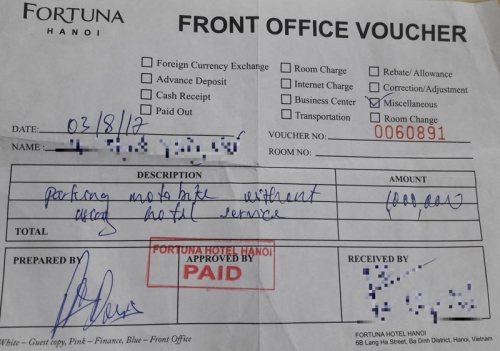 FORTUNA
HANOI
FRONT OFFICE VOUCHER
Foreign Currency Exchange
Advance Deposit
Cash Receipt
Paid Out
Room Charge
Internet Charge
Business Center
Transportation
Rebate/ Allowance
Correction/Adjustment
Miscellaneous
Room Change
DATE: 03/8/17
VOUCHER NO: 0060891
NAME :
ROOM NO:
DESCRIPTION AMOUNT
parking motobike without 1,000,000
using hotel service
TOTAL
PREPARED BY APPROVED BY RECEIVED BY
FORTUNA HOTEL HANOI
PAID
White – Guest copy, Pink – Finance, Blue – Front Office
FORTUNA HOTEL HANOI
6B Lang Ha Street, Ba Dinh District, Hanoi, Vietnam